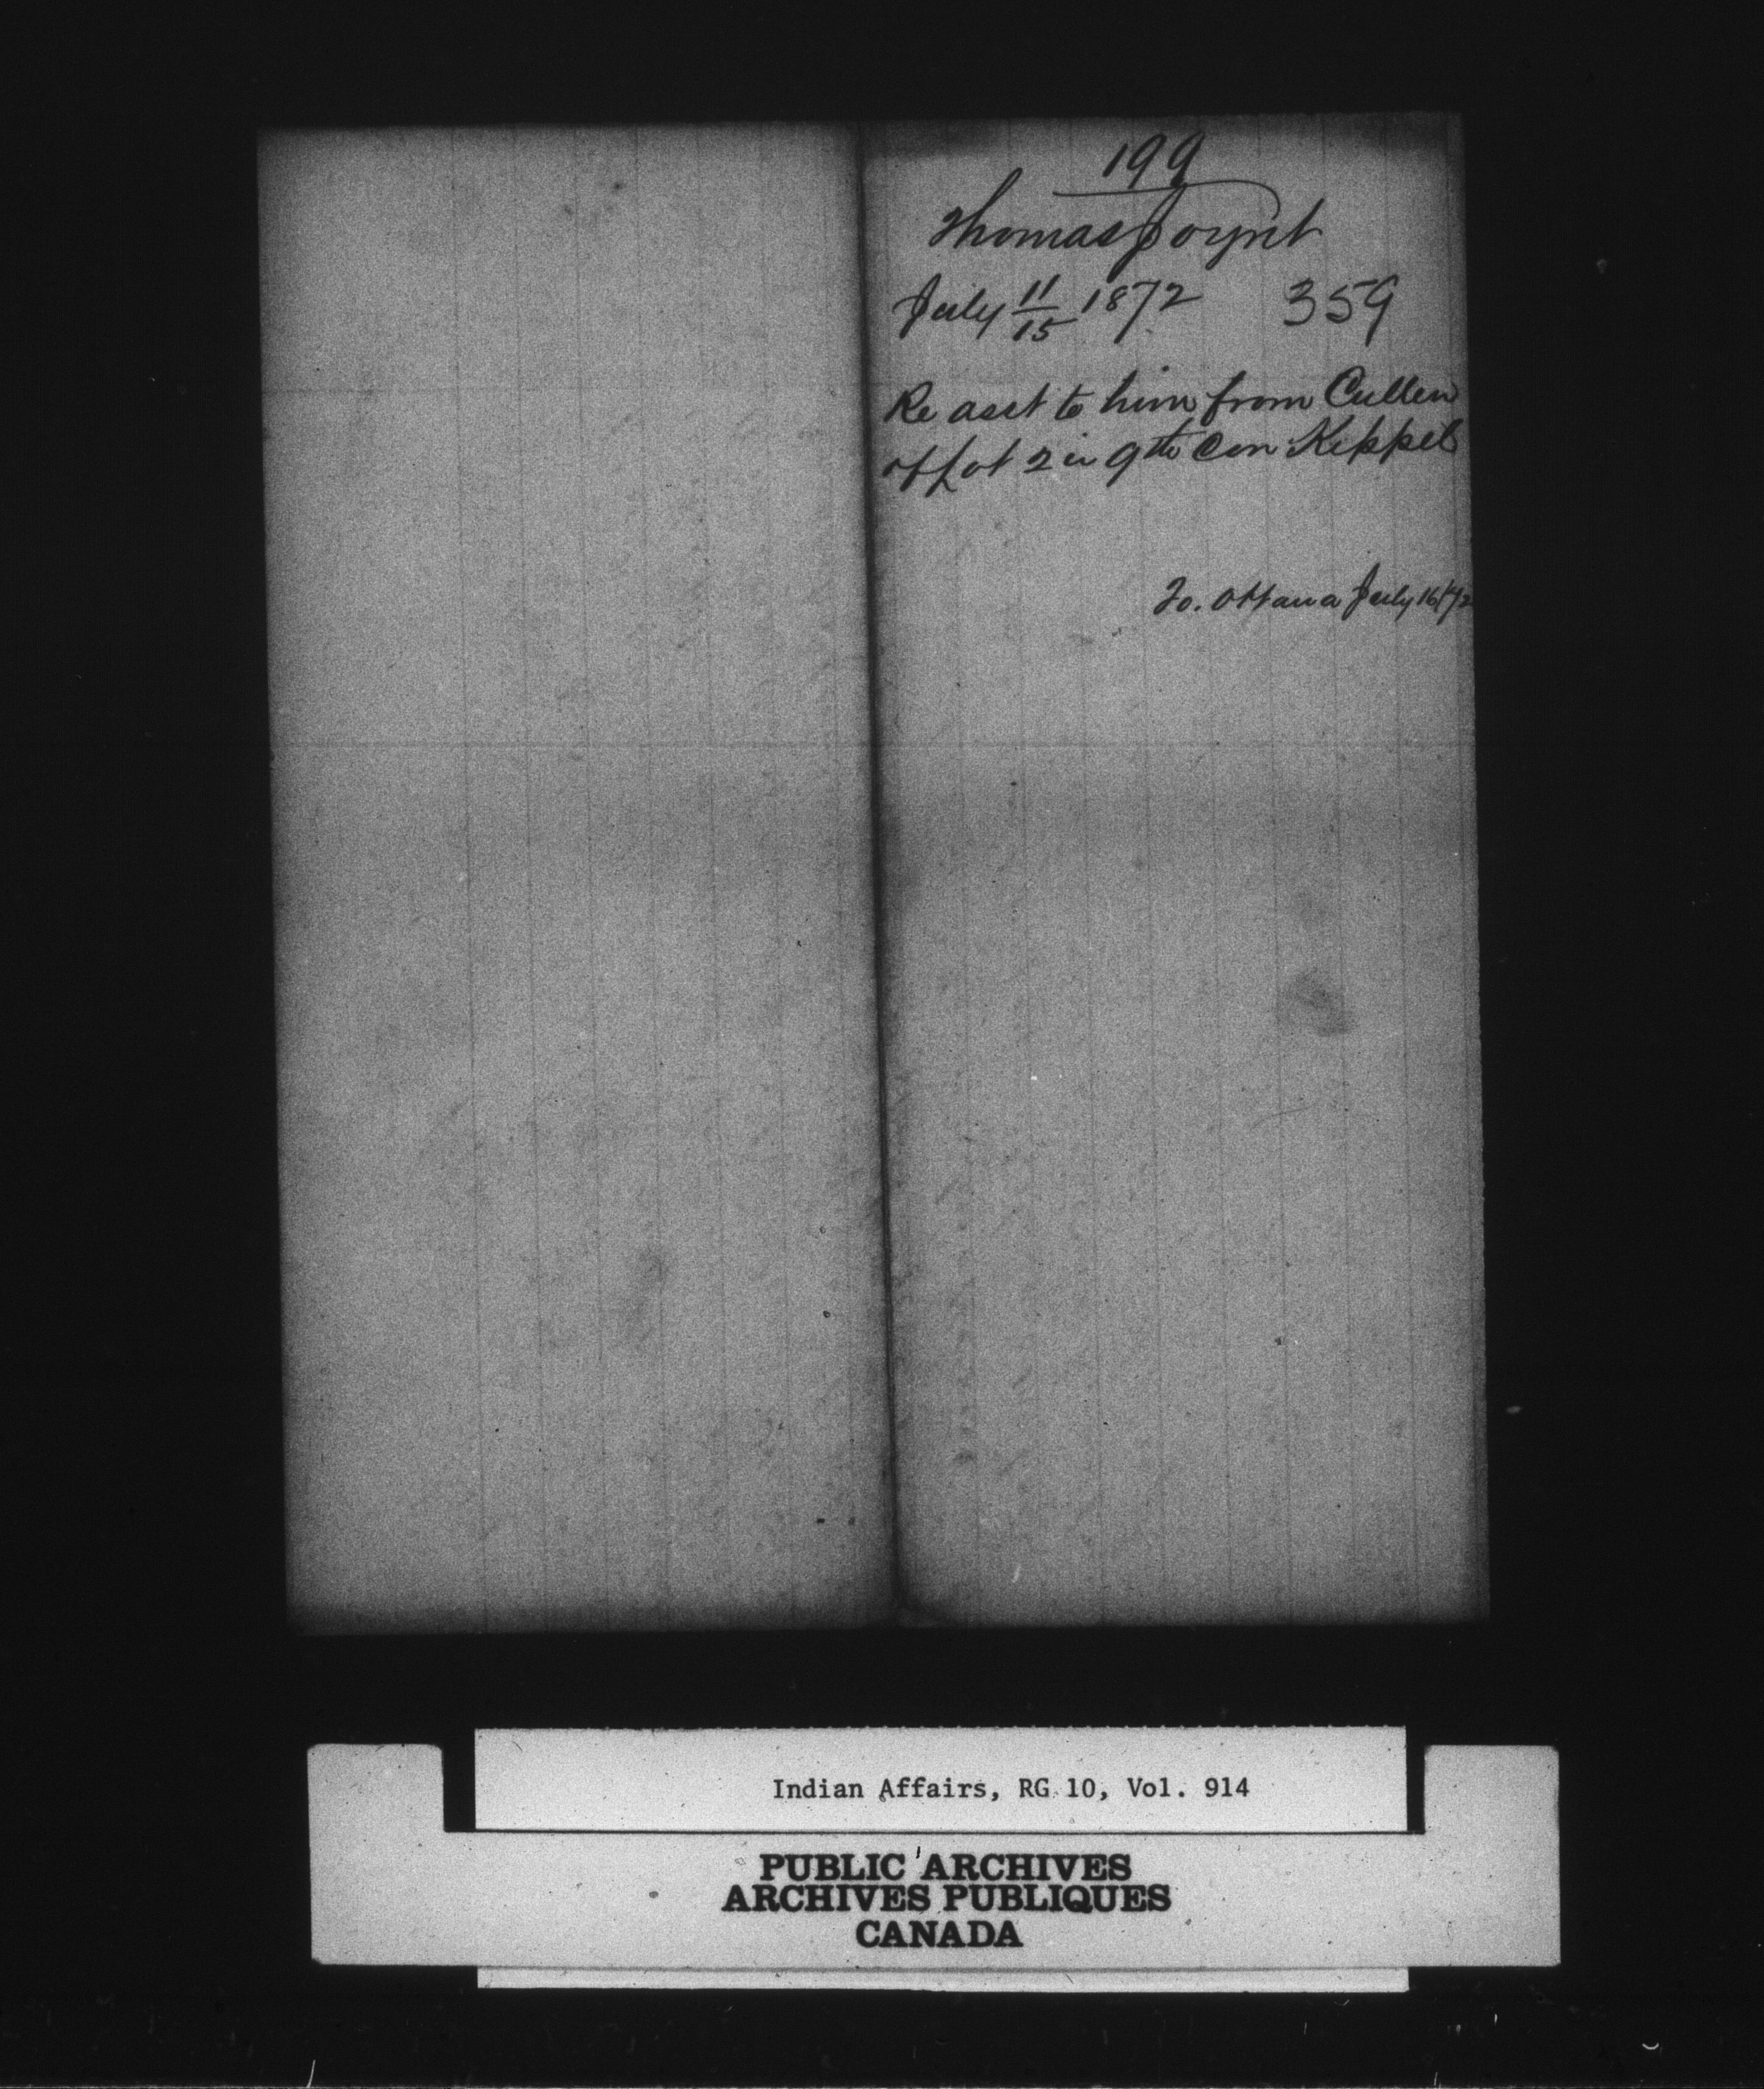 199
Thomas Joynt
July 11/15 1872 359
Re asst to him from Cullen
of Lot 2 in 9th Con Keppel
To. Ottawa July 16/72
Indian Affairs, RG 10, Vol. 914
PUBLIC ARCHIVES
ARCHIVES PUBLIQUES
CANADA